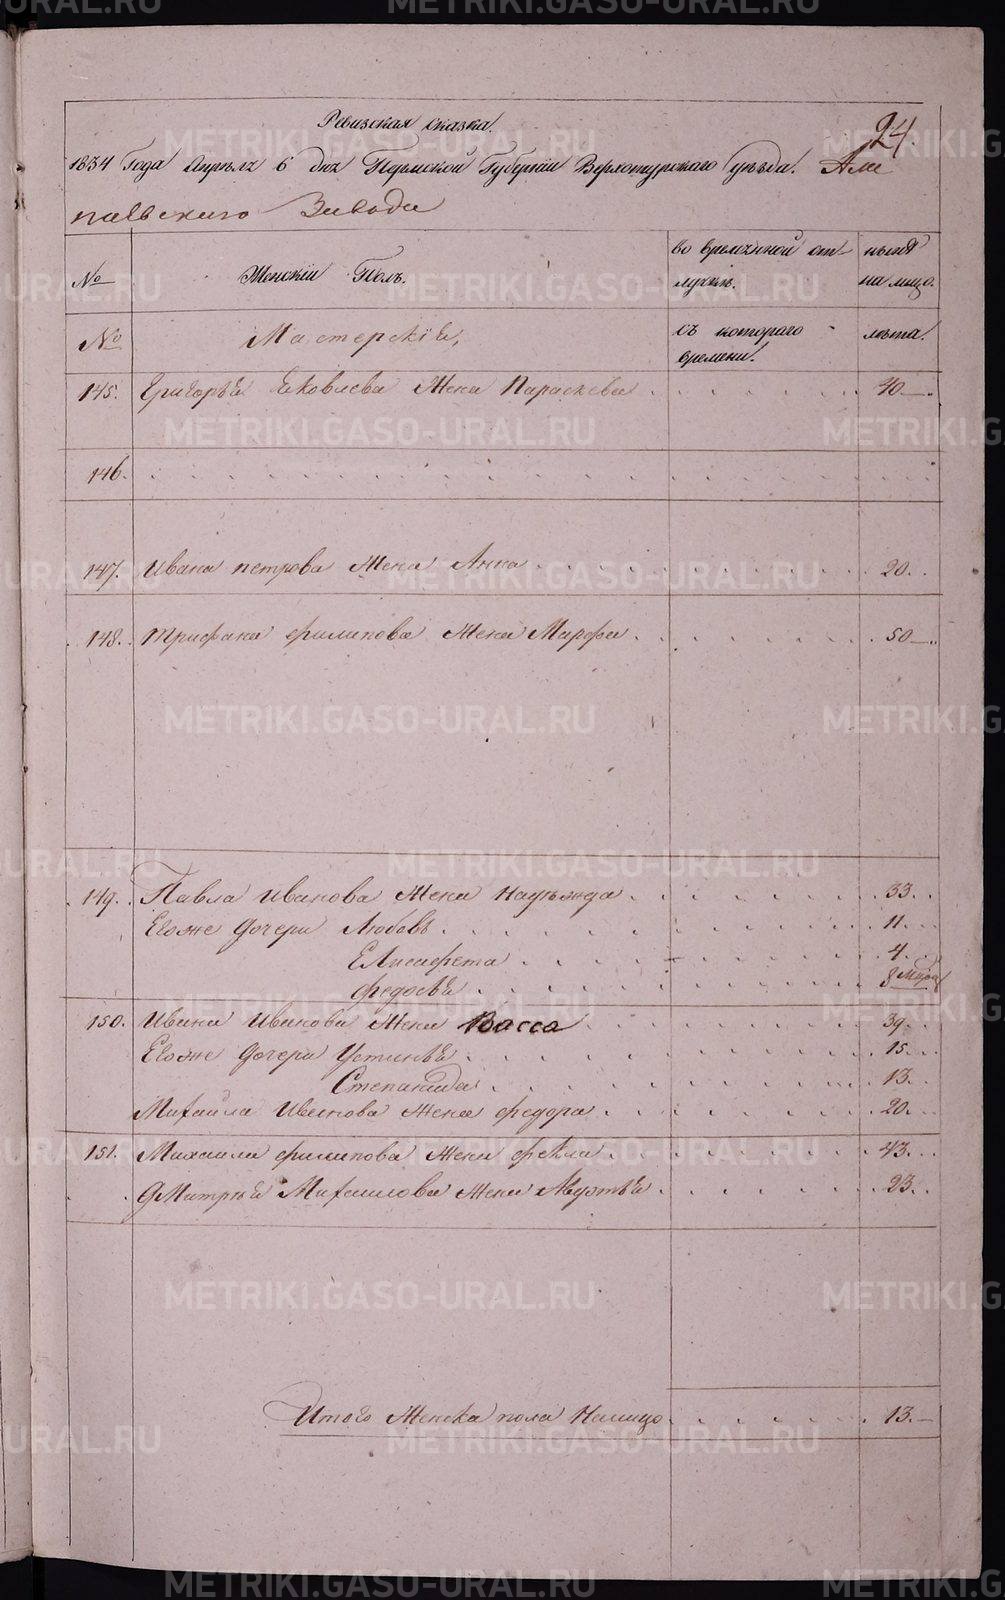 24.
Ревизская сказка.
1834 Года Апрѣля 6 дня Пермской Губерніи Верхотурскаго уѣзда. Ала
паевскаго Завода
№ Женскій Полъ. во временной от- нынѣ
лучкѣ. на лицо.
№ Мастерскіе, съ котораго лѣта.
времени.
145. Григорья Яковлева Жена Параскева 40
146.
147. Ивана петрова Жена Анна 20.
148. трифана филипова Жена Марфа 50
149. Павла Иванова Жена Надѣжда 33.
Его же дочери Любовь 11.
Елисавета 4.
федосья 8 мѣся
150. Ивана Иванова Жена Васса 39.
Его же дочери Устинья 15.
Степанида 13.
Михаила Иванова Жена федора 20.
151. Михаила филипова Жена фекла 43.
дмитрья Михаилова Жена Авдотья 23.
Итого Женска пола Налицо 13.
METRIKI.GASO-URAL.RU